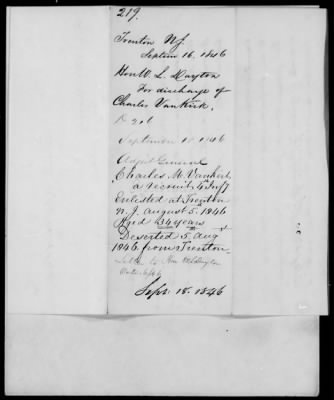 219.
Trenton NJ
Septem 16, 1846
Hon W. L. Dayton
For discharge of
Charles VanKirk.
D 206
September 1846
Adjut General
Charles M. Vankirk
a recruit Infy
Enlisted at Trenton
N. J. August 5. 1846
Aged 34 years
Deserted 5. Aug
1846. from Trenton
Letter to Hon Wm L Dayton
Sept: 18. 1846